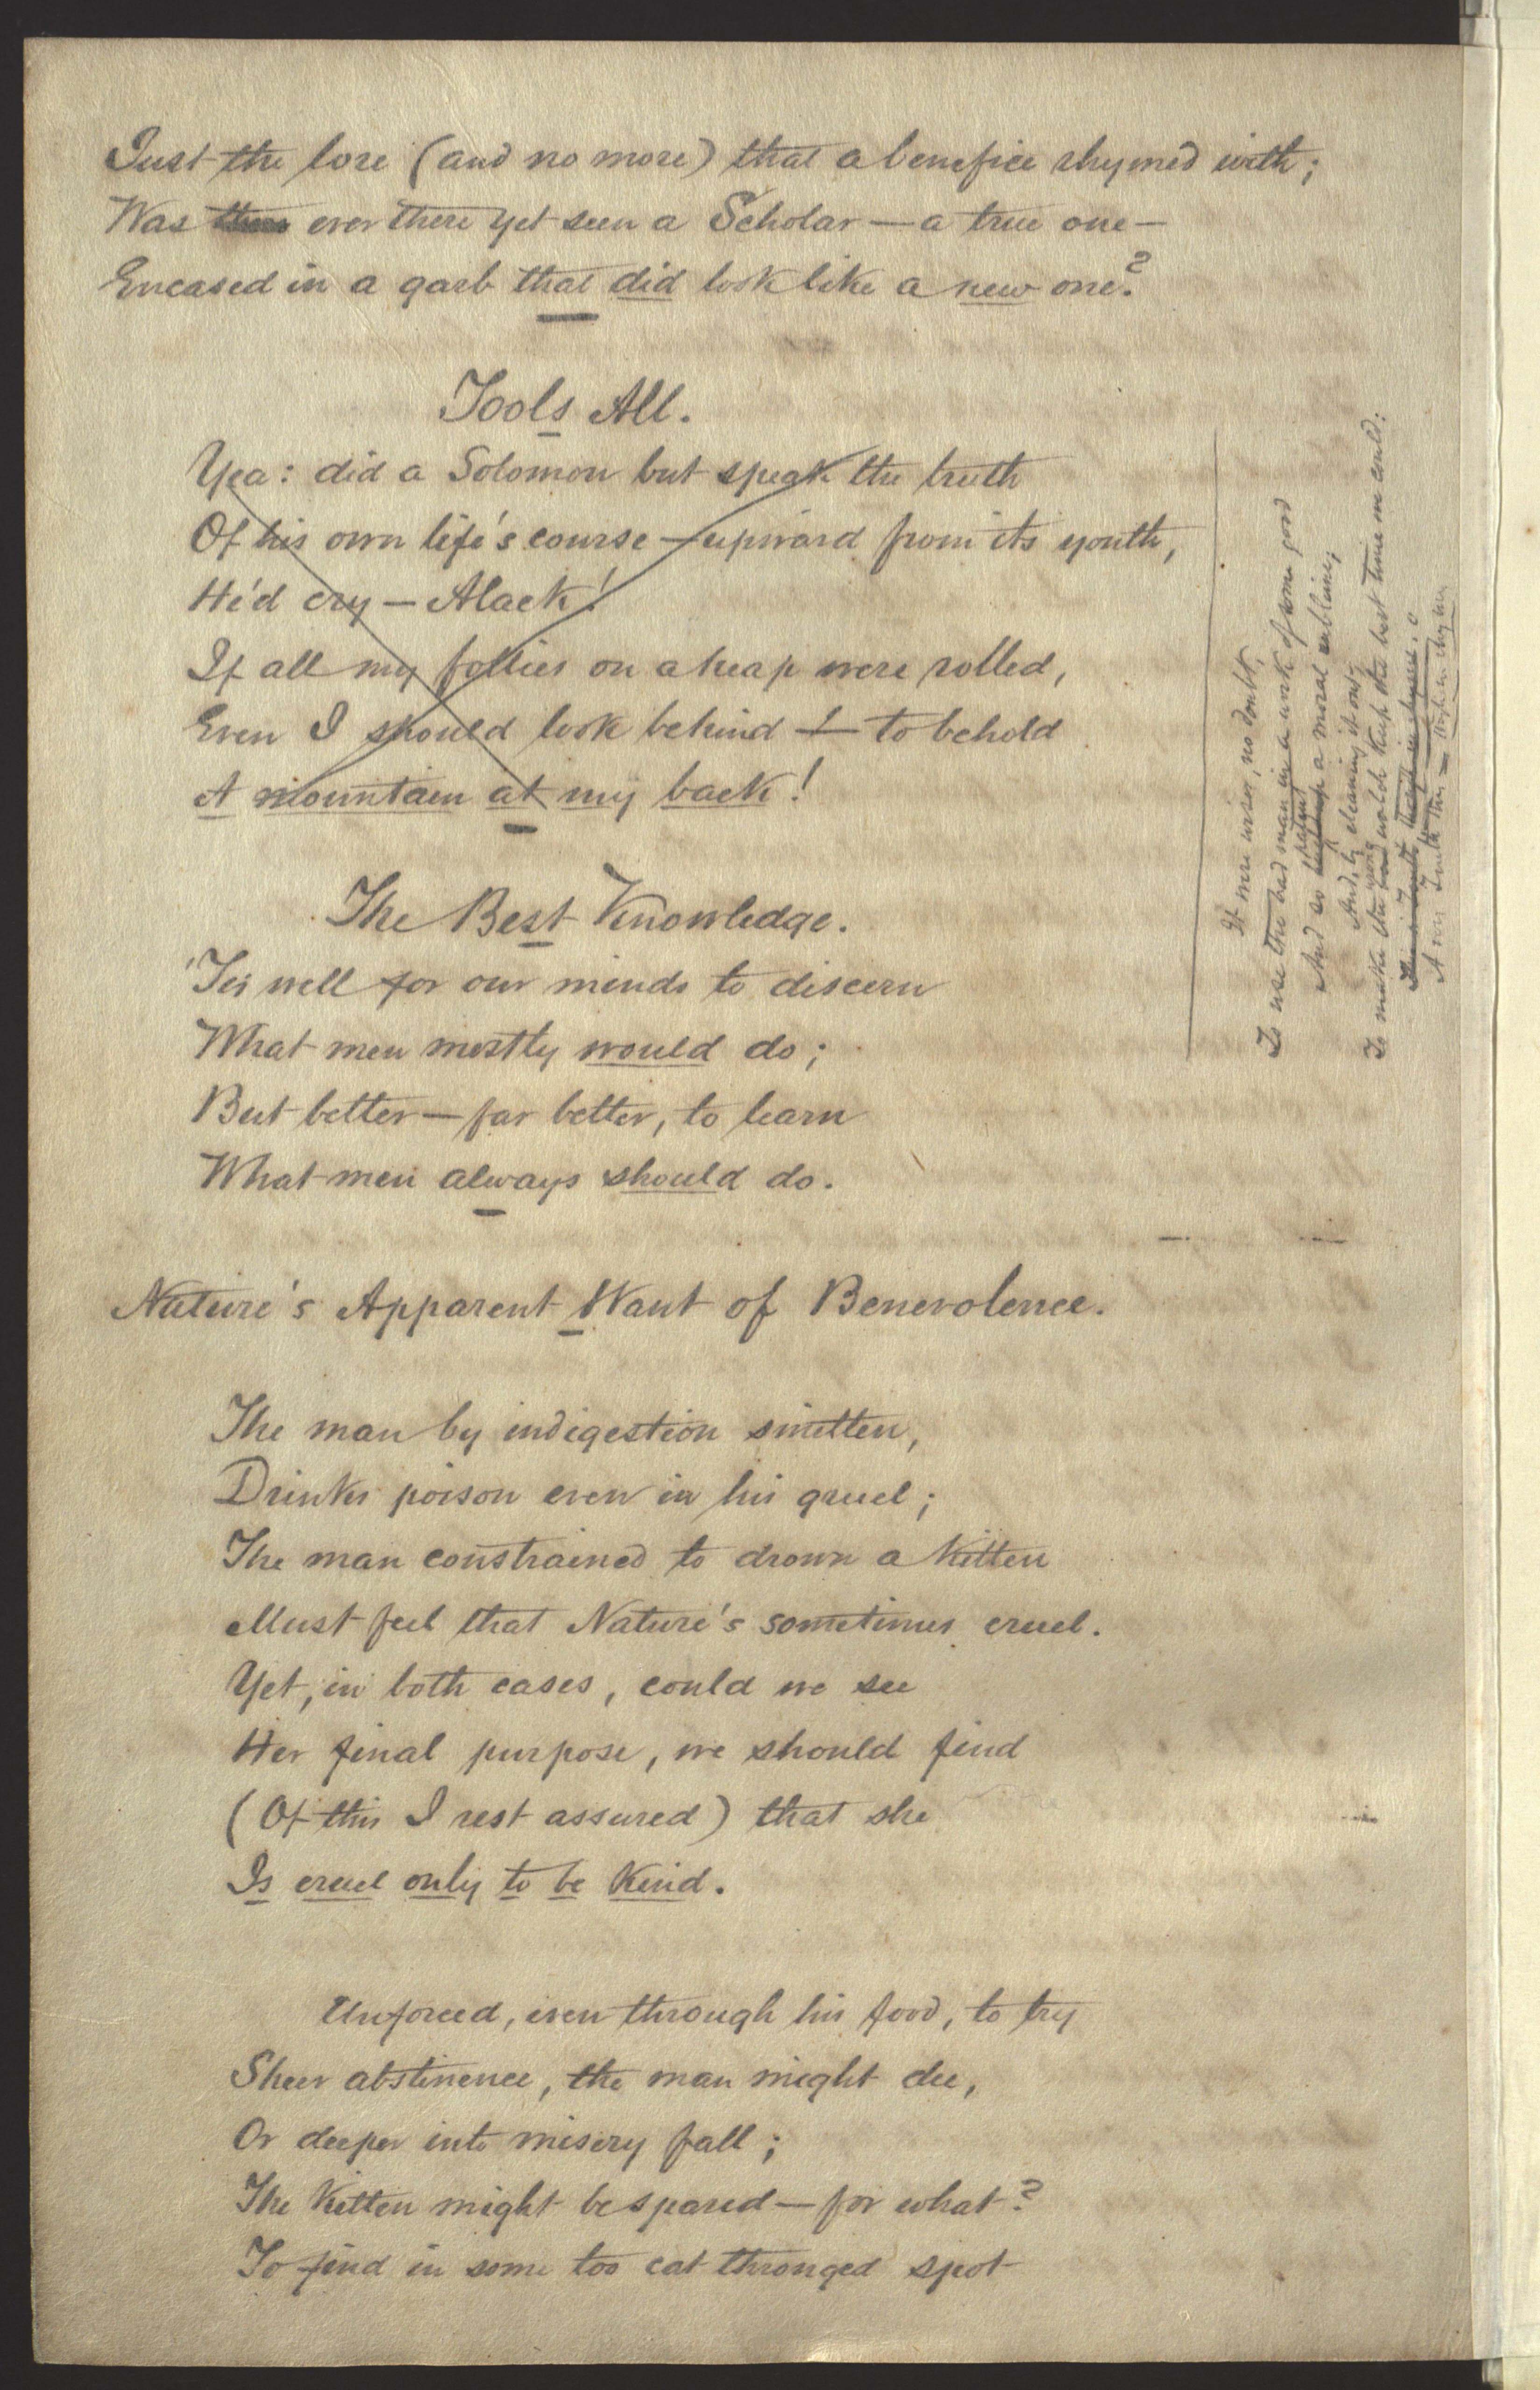 Just the lore (and no more) that a benefice rhymed with;
Was there ever there yet seen a Scholar — a true one —
Encased in a garb that did look like a new one?
Fools All.
Yea: did a Solomon but speak the truth
Of his own life's course — upward from its youth,
He'd cry — Alack!
If all my follies on a heap were rolled,
Even I should look behind — to behold
A mountain at my back!
The Best Knowledge.
'Tis well for our minds to discern
What men mostly would do;
But better — far better, to learn
What men always should do.
Nature's Apparent Want of Benevolence.
The man by indigestion smitten,
Drinks poison even in his gruel;
The man constrained to drown a kitten
Must feel that Nature's sometimes cruel.
Yet, in both cases, could we see
Her final purpose, we should find
(Of this I rest assured) that she
Is cruel only to be kind.
Unforced, even through his food, to try
Sheer abstinence, the man might die,
Or deeper into misery fall;
The kitten might be spared — for what?
To find in some too cat thronged spot
It were wiser, no doubt,
To use the bad man in a work of some good
And so a moral sublime,
And, by cleaning it out,
To make the watch keep the best time we could: